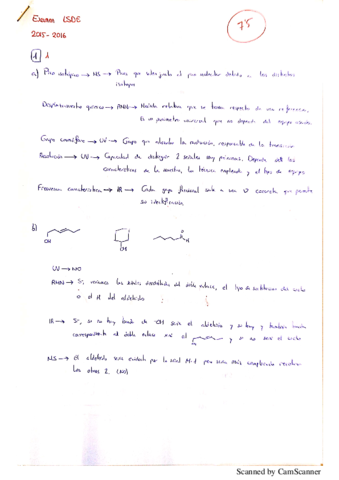 Examen LSDE
2015-2016
75
1 1
a) Pico isotópico → MS → Pico que
Desplazamiento químico → RMN → Medida relativa que se toma respecto de una referencia.
Es un parámetro universal que no depende del equipo
Grupo cromóforo → UV → Grupo que absorbe la radiación, responsable de la transición
Resolución → UV → Capacidad de distinguir 2 señales muy próximas. Depende de las
características de la muestra, la técnica empleada y el tipo de equipo
Frecuencia característica → IR → Cada grupo funcional sale a una ν concreta que permite
su identificación
b)
OH
OH
O
H
UV → NO
RMN → Si, veríamos las del doble enlace, el tipo de del anillo
o el H del aldehído
IR → Si, si no hay banda de -OH será el aldehído y si hay y también banda
correspondiente al doble enlace será el y si no será el anillo
MS → El aldehído por la señal M-1 pero sería más complicado
los otros 2. (NO)
Scanned by CamScanner